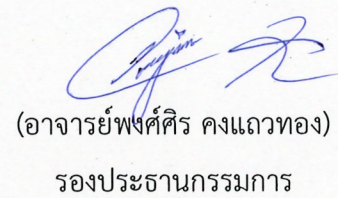 (อาจารย์พงศ์ศิร คงแถวทอง)
รองประธานกรรมการ